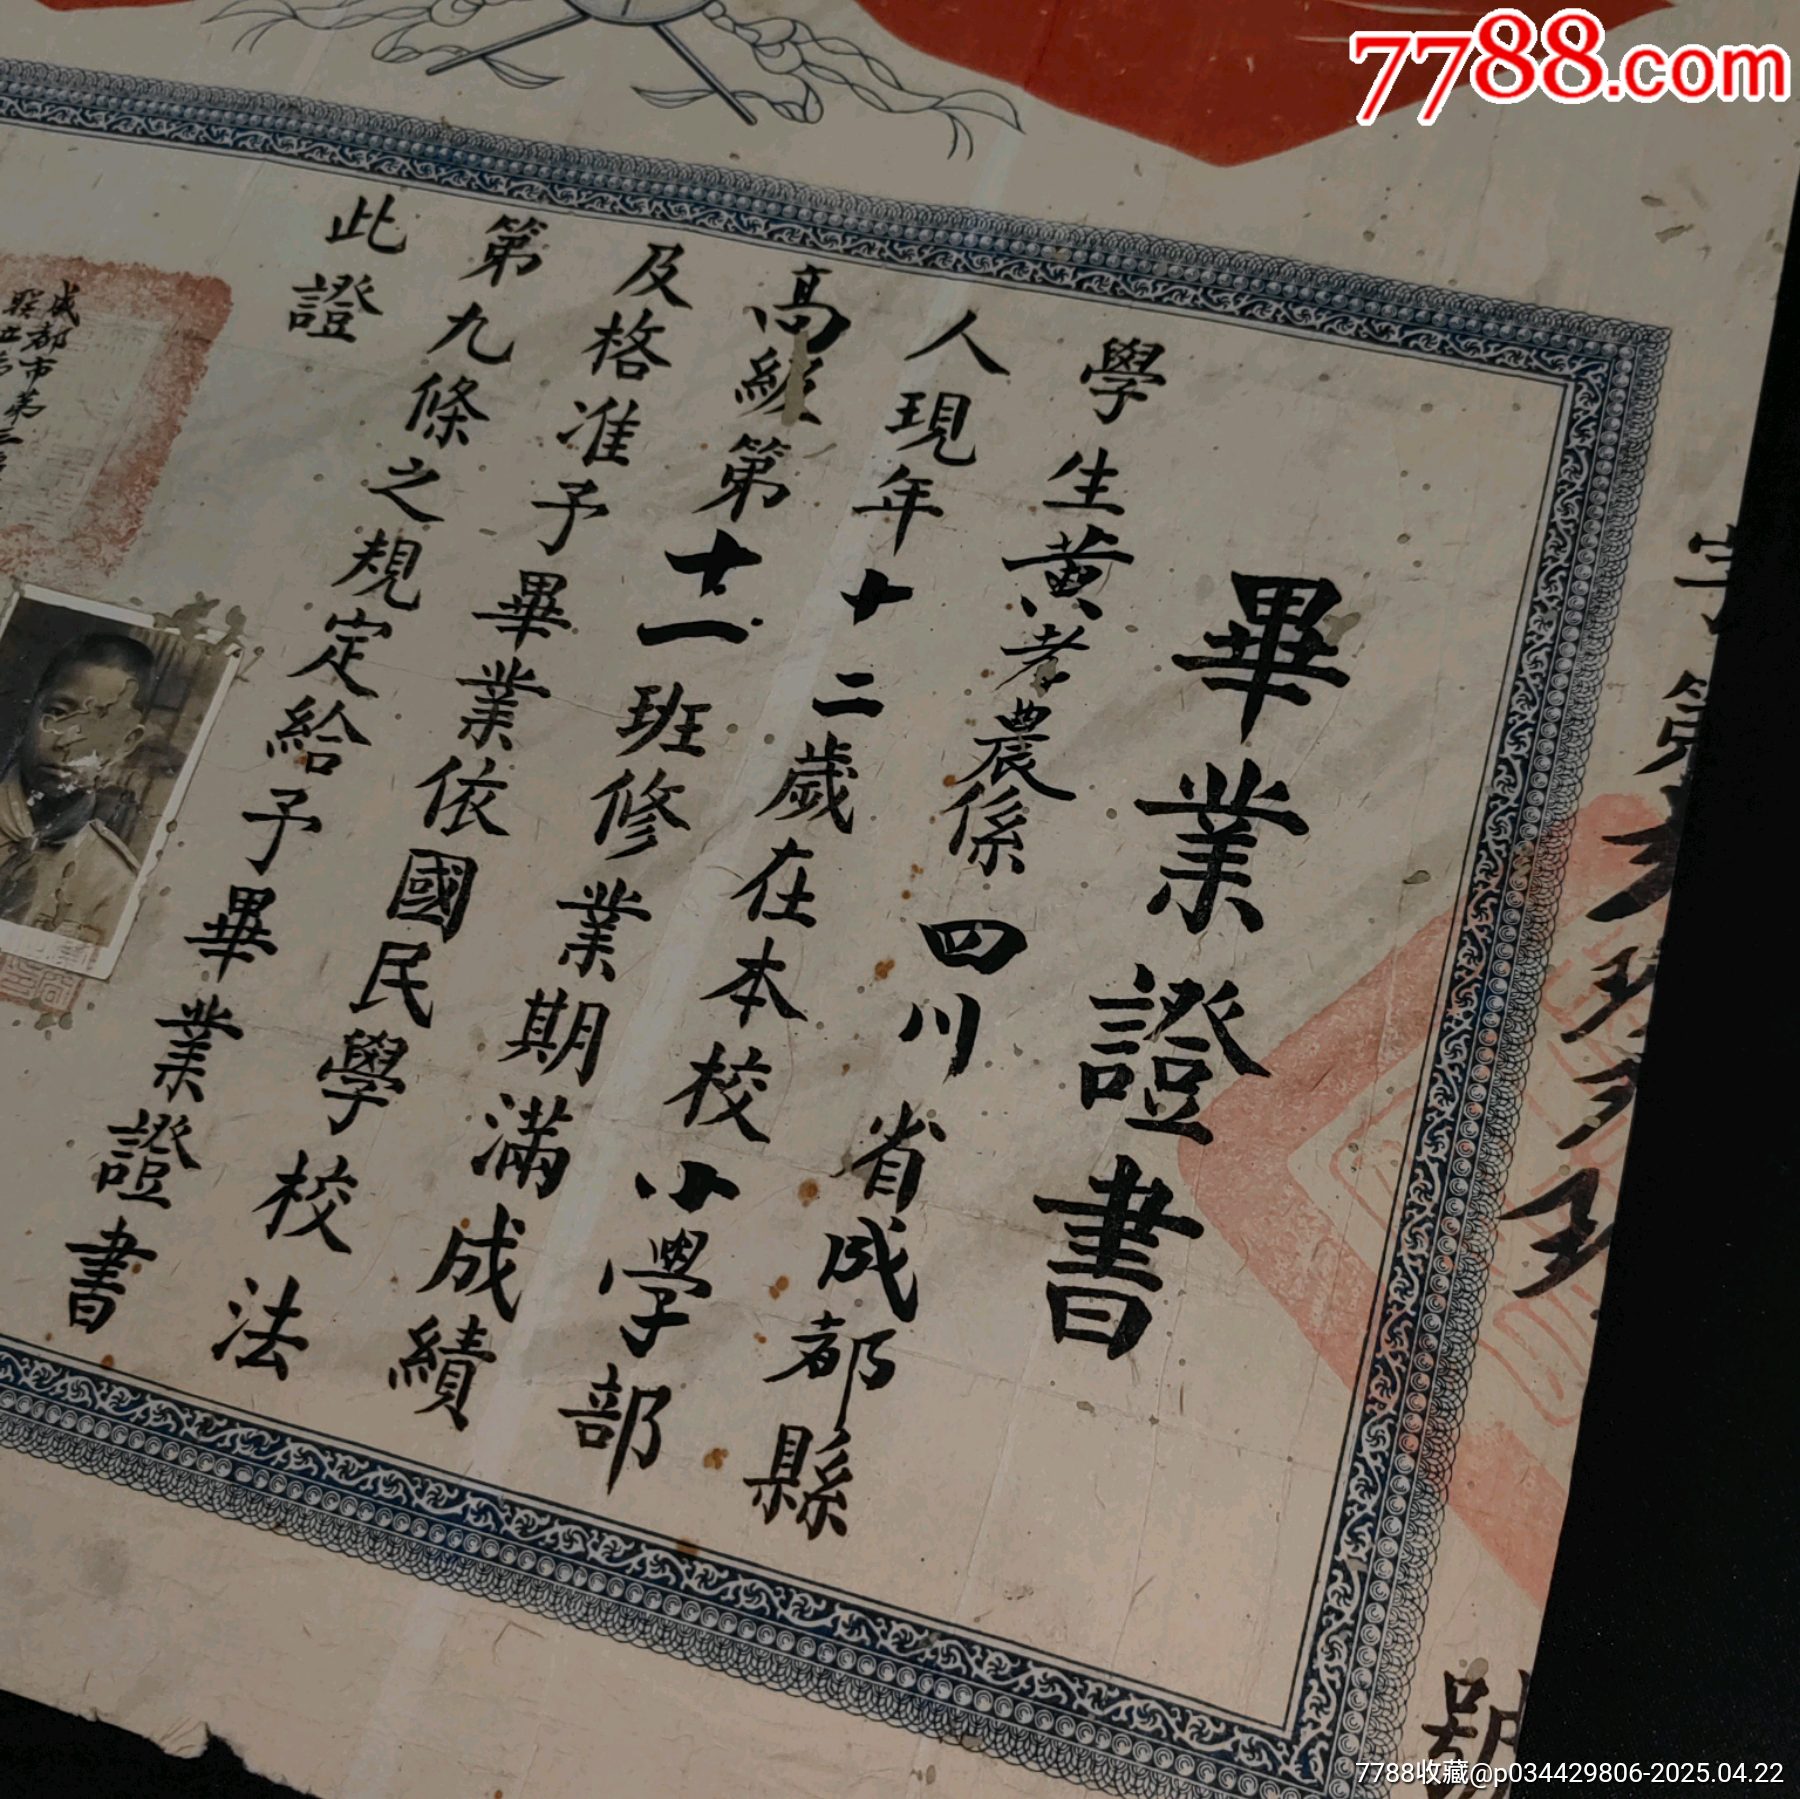 7788.com
畢業證書
學生黃孝農係四川省成都縣
人現年十二歲在本校小學部
高級第十二班修業期滿成績
及格准予畢業依國民學校法
第九條之規定給予畢業證書
此證
成都市第三
字第
號
7788收藏@p034429806-2025.04.22